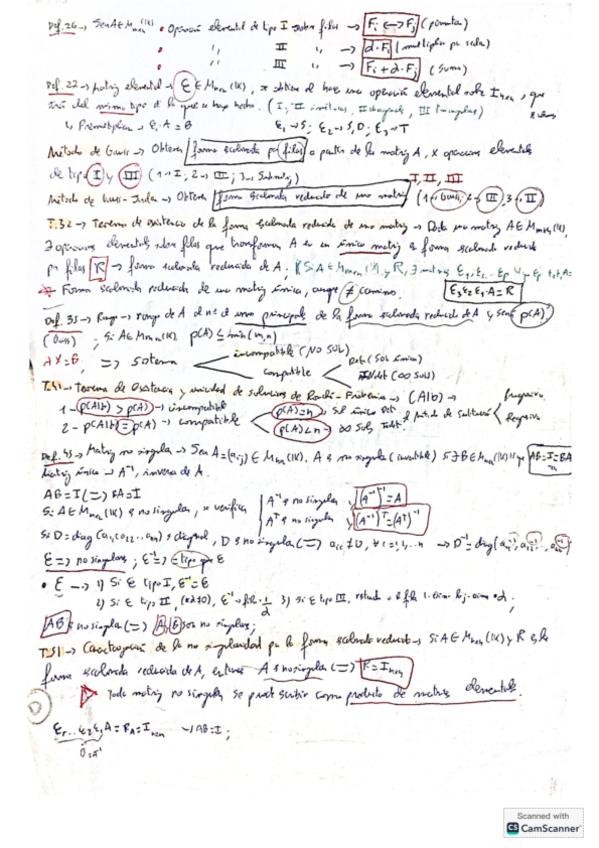 Def. 26 → Sea A ∈ M (IK) • Operación elemental de tipo I sobre filas → Fi ↔ Fj (permutar)
" " II " → α·Fi (multiplicar por escalar)
" " III " → Fi + α·Fj (suma)
Def. 27 → Matriz elemental → E ∈ M (IK), se obtiene al hacer una operación elemental sobre I, que
será del mismo tipo de la que se haya hecho. (I, II simétricas, II diagonal, III triangulares)
↳ Premultiplicar → E·A = B E₁→S; E₂→S, D; E₃→T
Método de Gauss → Obtener forma escalonada por filas a partir de la matriz A, x operaciones elementales
de tipo I y III (1→I, 2→III; 3→) I, II, III
Método de Gauss-Jordan → Obtener forma escalonada reducida de una matriz (1→Gauss, 2→III, 3→II)
T.32 → Teorema de existencia de la forma escalonada reducida de una matriz → Dada una matriz A ∈ M (IK),
∃ operaciones elementales sobre filas que transforman A en una única matriz en forma escalonada reducida
por filas R → forma escalonada reducida de A; Si A ∈ M (IK) y R, ∃ matrices E₁, E₂... Ep
* Forma escalonada reducida de una matriz única, aunque ≠ caminos. E₃E₂E₁·A = R
Def. 35 → Rango → rango de A al nº de unos principales de la forma escalonada reducida de A y será p(A)
(Gauss) ; Si A ∈ M (IK) p(A) ≤ min(m,n)
AX = B, ⇒ Sistema incompatible (NO SOL)
compatible Det (SOL única)
INdet (∞ Sols)
T.41 → Teorema de Existencia y unicidad de soluciones de Rouché-Frobenius → (A|b)
1 - p(A|b) > p(A) → incompatible
2 - p(A|b) = p(A) → compatible p(A) = n → Sol única Det el método de sustitución Progresiva
p(A) < n → ∞ Sols Indet Regresiva
Def. 43 → Matriz no singular → Sea A = (aij) ∈ M (IK), A es no singular (invertible) si ∃ B ∈ M (IK) AB = I = BA
Matriz única → A⁻¹, inversa de A.
AB = I ⇔ BA = I
Si A ∈ M (IK) es no singular, se verifica A⁻¹ es no singular, (A⁻¹)⁻¹ = A
Aᵗ es no singular, (A⁻¹)ᵗ = (Aᵗ)⁻¹
Si D = diag (a₁₁, a₂₂, ..., ann) es diagonal, D es no singular ⇔ aii ≠ 0, ∀ i = 1, ... n → D⁻¹ = diag (a₁₁⁻¹, a₂₂⁻¹, ..., ann⁻¹)
E ⇒ no singulares; E⁻¹ ⇒ = tipo que E
• E → 1) Si E tipo I, E⁻¹ = E
2) Si E tipo II, (α≠0), E⁻¹ → fila · 1/α 3) Si E tipo III,
AB es no singular ⇔ A, B son no singulares;
T.51 → Caracterización de la no singularidad por la forma escalonada reducida → Si A ∈ M (IK) y R es la
forma escalonada reducida de A, entonces A es no singular ⇔ F = I
Toda matriz no singular se puede escribir como producto de matrices elementales.
Er...E₂E₁A = RA = I → AB = I;
Scanned with
CS CamScanner